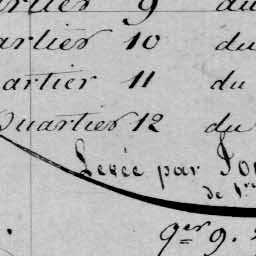 artier 9 du
artier 10 du
artier 11 du
Quartier 12 du
Levée par
de
qer 9.